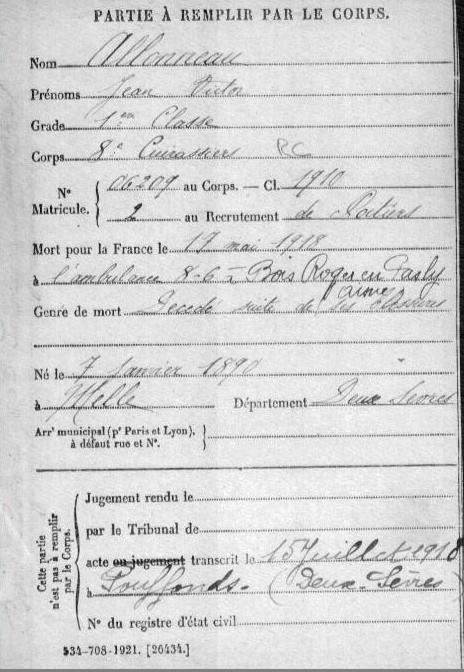 PARTIE À REMPLIR PAR LE CORPS.
Nom Allonneau
Prénoms Jean Victor
Grade 1ère Classe
Corps 8e Cuirassiers PC
N° Matricule. { 06209 au Corps. — Cl. 1910
2 au Recrutement de Poitiers
Mort pour la France le 17 mai 1918
à l'ambulance 8-6 - Bois Roger en Pasly
Aisne
Genre de mort Décédé suite de ses blessures
Né le 7 Janvier 1890
à Melle Département Deux Sèvres
Arrt municipal (pr Paris et Lyon), à défaut rue et N°. }
Cette partie n'est pas à remplir par le Corps.
Jugement rendu le
par le Tribunal de
acte ou jugement transcrit le 15 Juillet 1918
à Pouffonds - (Deux-Sèvres)
N° du registre d'état civil
534-708-1921. [26434.]